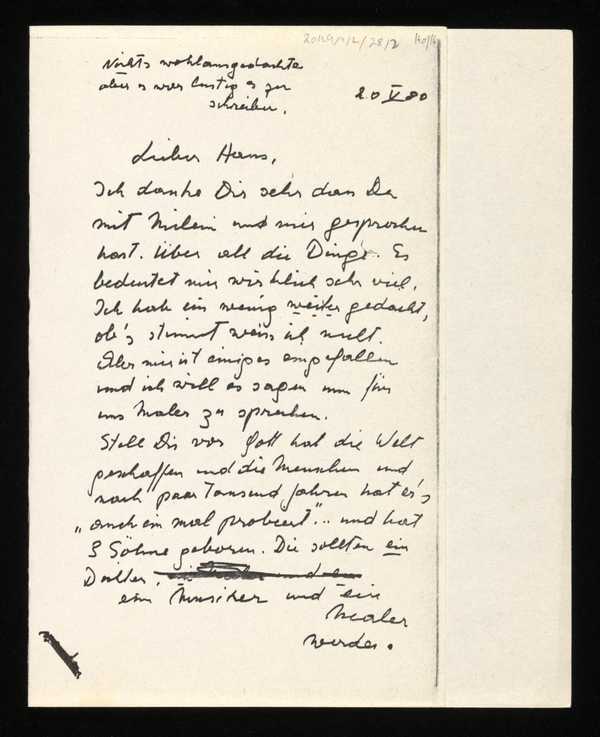 Nichts wohlausgedachte
aber es war lustig es zu
schreiben.
20 V 80
Lieber Hans,
Ich danke Dir sehr dass Du
mit Milein und mir gesprochen
hast. Über all die Dinge. Es
bedeutet mir wirklich sehr viel.
Ich hab ein wenig weiter gedacht,
ob's stimmt weiss ich nicht.
Aber mir ist einiges eingefallen
und ich will es sagen um für
uns Maler zu sprechen.
Stell Dir vor Gott hat die Welt
geschaffen und die Menschen und
nach paar Tausend Jahren hat er's
„auch ein mal probiert"... und hat
3 Söhne geboren. Die sollten ein
Dichter,
ein Musiker und ein
Maler
werden.